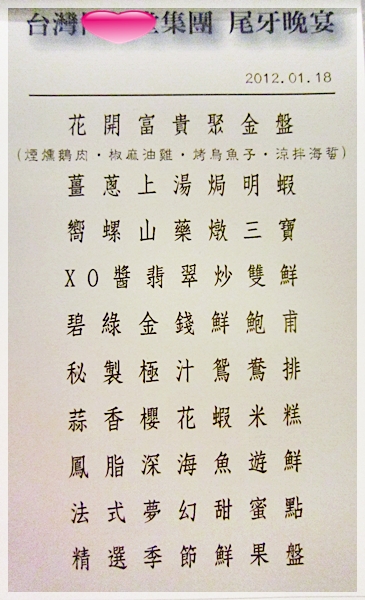 台灣 集團 尾牙晚宴
2012.01.18
花開富貴聚金盤
(煙燻鵝肉·椒麻油雞·烤烏魚子·涼拌海蜇)
薑蔥上湯焗明蝦
嚮螺山藥燉三寶
XO醬翡翠炒雙鮮
碧綠金錢鮮鮑甫
秘製極汁鴛鴦排
蒜香櫻花蝦米糕
鳳脂深海魚遊鮮
法式夢幻甜蜜點
精選季節鮮果盤